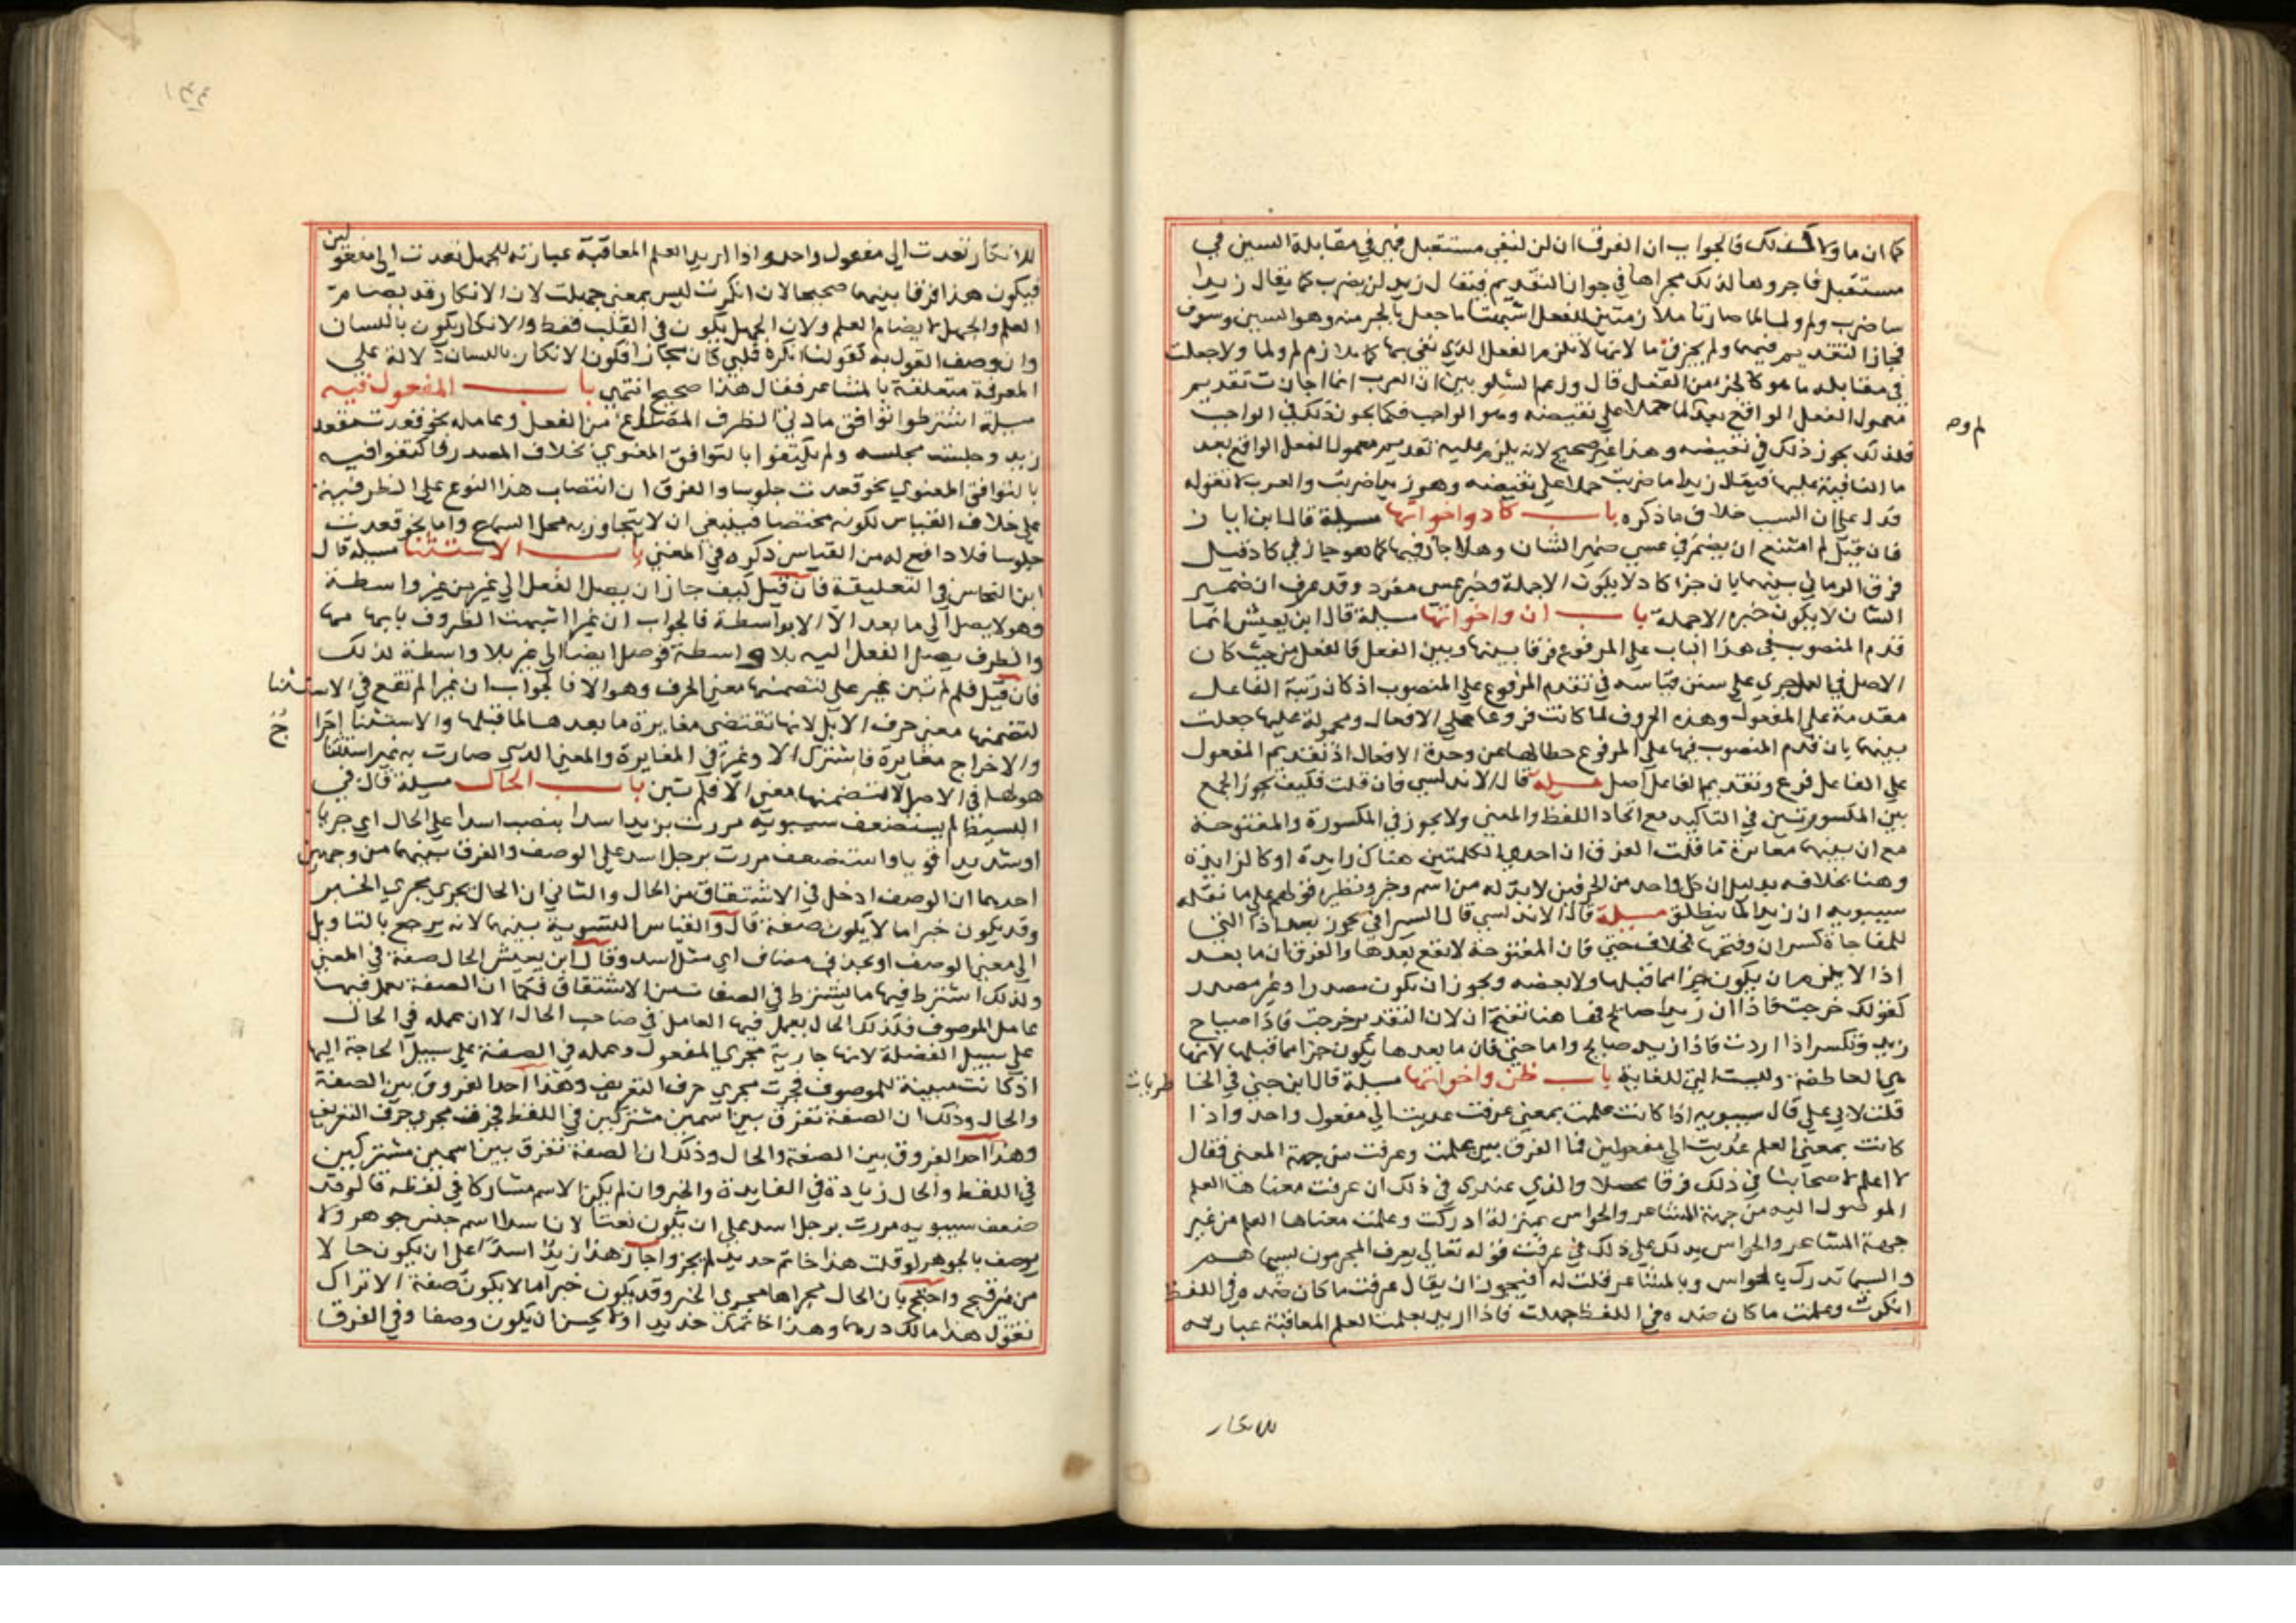 كما ان ما ولا كذلك فالجواب ان الفرق ان لن لنفي مستقبل فهي في مقابلة السين في
مستقبل فاجروها لذلك مجراها في جواز التقديم فتقال زيد لن يضرب كما يقال زيدا
ساضرب ولم ولما لما صارتا ملازمتين للفعل اشبهتا ما جعل كالجز منه وهو السين وسوف
فجاز التقديم فيهما ولم يجز في ما لانها لا تلزم الفعل الذي نفي بها كما تلازم لم ولما ولا جعلت
في مقابله ما هو كالجز من الفعل قال وزعم الشلوبين ان العرب انما اجازت تقديم
معمول الفعل الواقع بعد لما حملا على نقيضه وهو الواجب فكما يجوز ذلك في الواجب
فلذلك يجوز ذلك في نقيضه وهذا غير صحيح لانه يلزم عليه تقديم معمول الفعل الواقع بعد
لم وم
ما النافية عليها فيقال زيدا ما ضربت حملا على نقيضه وهو زيدا ضربت والعرب لا تقوله
فدل على ان السبب خلاف ما ذكره باب كاد واخواتها مسيلة قال ابن اياز
فان قيل لم امتنع ان يضمر في عسي ضمير الشان وهلا جاز فيها كما هو جايز في كاد قيل
فرق الرماني بينهما بان خبر كاد لا يكون الا جملة وخبر عسي مفرد وقد عرف ان ضمير
الشان لا يكون خبره الا جملة باب ان واخواتها مسيلة قال ابن يعيش انما
قدم المنصوب في هذا الباب على المرفوع فرقا بينها وبين الفعل فالفعل من حيث كان
الاصل في العمل جري على سنن قياسه في تقدم المرفوع على المنصوب اذ كان رتبة الفاعل
مقدمة على المفعول وهذه الحروف لما كانت فروعا على الافعال ومحمولة عليها جعلت
بينهما بان قدم المنصوب فيها على المرفوع حطا لها عن درجة الافعال اذ تقديم المفعول
على الفاعل فرع وتقديم الفاعل اصل مسيلة قال الاندلسي فان قلت فكيف يجوز الجمع
بين المكسورتين في التاكيد مع اتحاد اللفظ والمعني ولا يجوز في المكسورة والمفتوحة
مع ان بينهما مغايرة ما قلت الفرق ان احدي الكلمتين هناك زايدة او كالزايدة
وهنا بخلافه بدليل ان كل واحد من الحرفين لابد له من اسم وخبر ونظيره قولهم على ما نقله
سيبويه ان زيدا لما لينطلق مسيلة قال الاندلسي قال السيرافي يجوز بعد اذا التي
للمفاجاة كسر ان وفتحها بخلاف حتي فان المفتوحة لا تقع بعدها والفرق ان ما بعد
اذا لا يلزم ان يكون جزا مما قبلها ولا بعضه ويجوز ان يكون مصدرا وغير مصدر
كقولك خرجت فاذا ان زيدا صايح فها هنا تفتح ان لان التقدير خرجت فاذا صياح
زيد وتكسر اذا اردت فاذا زيد صايح واما حتي فان ما بعدها يكون جزا مما قبلها لانها
هي العاطفة وليست التي للغاية باب ظن واخواتها مسيلة قال ابن جني في الخا
طريات
قلت لابي علي قال سيبويه اذا كانت علمت بمعني عرفت عديت الي مفعول واحد واذا
كانت بمعني العلم عديت الي مفعولين فما الفرق بين علمت وعرفت من جهة المعني فقال
لا اعلم لاصحابنا في ذلك فرقا محصلا والذي عندي في ذلك ان عرفت معناها العلم
الموصول اليه من جهة المشاعر والحواس بمنزلة ادركت وعلمت معناها العلم من غير
جهة المشاعر والحواس يدلك على ذلك في عرفت قوله تعالي يعرف المجرمون بسيماهم
والسيما تدرك بالحواس وبالمشاعر قلت له افيجوز ان يقال عرفت ما كان ضده في اللفظ
انكرت وعلمت ما كان ضده في اللفظ جهلت فاذا اريد بعلمت العلم المعاقبة عبارته
للانكار
للانكار تعدت الي مفعول واحد واذا اريد العلم المعاقبة عبارته للجهل تعدت الي مفعولين
فيكون هذا فرقا بينهما صحيحا لان انكرت ليس بمعني جهلت لان الانكار قد يضام
العلم والجهل لا يضام العلم ولان الجهل يكون في القلب فقط والانكار يكون باللسان
وان وصف القول به كقولنا انكره قلبي كان مجازا فكون الانكار باللسان دلالة على
المعرفة متعلقة بالمشاعر فقال هذا صحيح انتهي باب المفعول فيه
مسيلة اشترطوا توافق مادتي الظرف المصوغ من الفعل وعامله نحو قعدت مقعد
زيد وجلست مجلسه ولم يكتفوا بالتوافق المعنوي بخلاف المصدر فاكتفوا فيه
بالتوافق المعنوي نحو قعدت جلوسا والفرق ان انتصاب هذا النوع على الظرفية
على خلاف القياس لكونه مختصا فينبغي ان لا يتجاوز به محل السماع واما نحو قعدت
جلوسا فلا دافع له من القياس ذكره في المغني باب الاستثنا مسيلة قال
ابن النحاس في التعليقة فان قيل كيف جاز ان يصل الفعل الي غير من غير واسطة
وهو لا يصل الي ما بعد الا الا بواسطة فالجواب ان غيرا اشبهت الظروف بابهامها
والظرف يصل الفعل اليه بلا واسطة فوصل ايضا الي غير بلا واسطة لذلك
فان قيل فلم لم تبن غير على لتضمنها معني الحرف وهو الا فالجواب ان غيرا لم تقع في الاستثنا
لتضمنها معني حرف الا بل لانها تقتضي مغايرة ما بعدها لما قبلها والاستثنا اخرا
ج
والاخراج مغايرة فاشترك الا وغير في المغايرة والمعني الذي صارت به غير استثنا
هو لها في الاصل لا لتضمنها معني الا فلم تبن باب الحال مسيلة قال في
البسيط لم يستضعف سيبويه مررت بزيد اسدا بنصب اسدا على الحال اي جريا
او شديدا قويا واستضعف مررت برجل اسد على الوصف والفرق بينهما من وجهين
احدهما ان الوصف ادخل في الاشتقاق من الحال والثاني ان الحال يجري مجري الخبر
وقد يكون خبرا ما لا يكون صفة قال والقياس التسوية بينهما لانه يرجع بالتاويل
الي معني الوصف او بحذف مضاف اي مثل اسد وقال ابن يعيش الحال صفة في المعني
ولذلك اشترط فيها ما يشترط في الصفات من الاشتقاق فكما ان الصفة يعمل فيها
عامل الموصوف فكذلك الحال يعمل فيها العامل في صاحب الحال الا ان عمله في الحال
على سبيل الفضلة لانها جارية مجري المفعول وعمله في الصفة على سبيل الحاجة اليها
اذ كانت مبينة للموصوف فجرت مجري حرف التعريف وهذا احد الفروق بين الصفة
والحال وذلك ان الصفة تفرق بين اسمين مشتركين في اللفظ فجرت مجري حرف التعريف
وهذا احد الفروق بين الصفة والحال وذلك ان الصفة تفرق بين اسمين مشتركين
في اللفظ والحال زيادة في الفايدة والخبر وان لم يكن الاسم مشاركا في لفظه قال وقد
ضعف سيبويه مررت برجل اسد على ان يكون نعتا لان اسدا اسم جنس جوهر ولا
يوصف بالجوهر لو قلت هذا خاتم حديد لم يجز واجاز هذا زيد اسدا على ان يكون حالا
من غير قبح واحتج بان الحال مجراها مجري الخبر وقد يكون خبرا ما لا يكون صفة الا تراك
تقول هذا مالك درهما وهذا خاتمك حديدا ولا يحسن ان يكون وصفا وفي الفرق